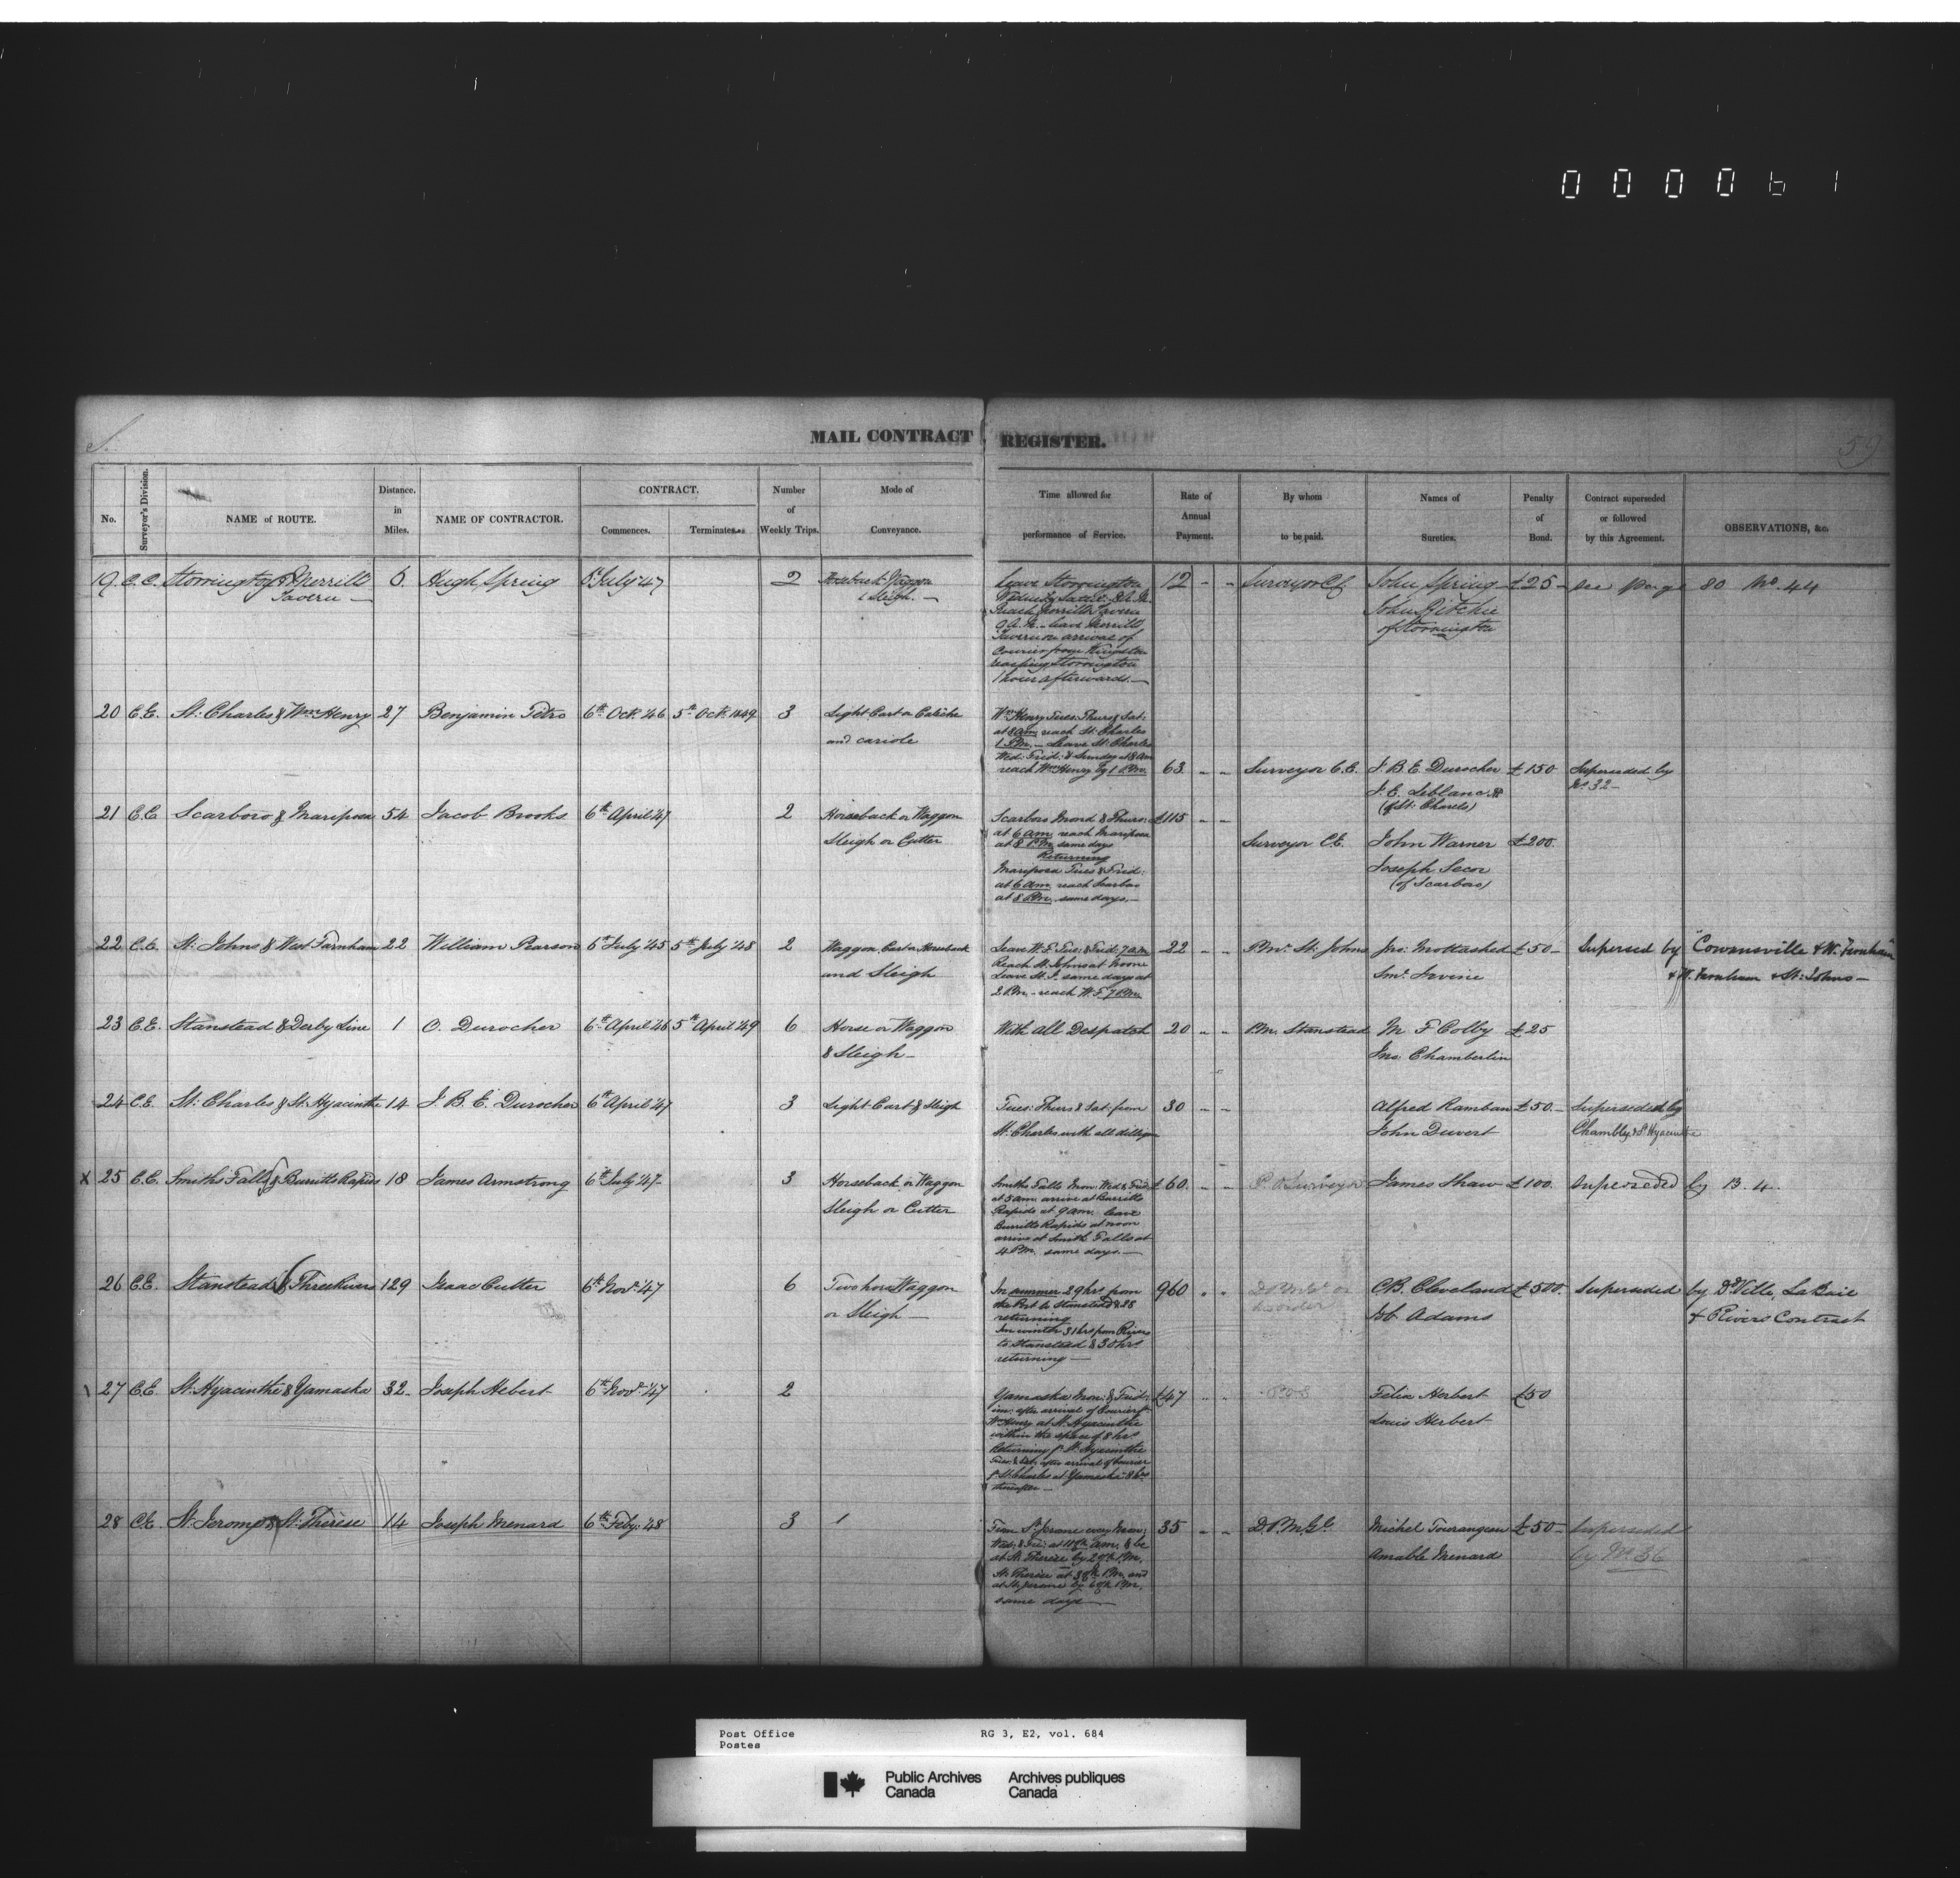 000061
S.
59
MAIL CONTRACT REGISTER.
No.
Surveyor's Division.
NAME of ROUTE.
Distance. in Miles.
NAME OF CONTRACTOR.
CONTRACT.
Commences.
Terminates.
Number of Weekly Trips.
Mode of Conveyance.
Time allowed for performance of Service.
Rate of Annual Payment.
By whom to be paid.
Names of Sureties.
Penalty of Bond.
Contract superseded or followed by this Agreement.
OBSERVATIONS, &c.
19. C.C. Storrington & Merrill 6. Hugh Spring 6th July '47 2 Horseback Waggon
Tavern —
& Sleigh. —
leave Storrington 12 - - Surveyor John Spring £25 - See page 80 No. 44
John Ritchie
of Storrington
Reach Merrills Tavern
leave Merrill
Tavern on arrival of
Courier from Kingston
reaching Storrington
1 hour afterwards. —
20 C.E. St: Charles & Wm Henry 27 Benjamin Petro 6th Oct. '46 5th Oct. 1849 3 Light Cart or Calèche
and cariole
Wm Henry Tues: Thurs & Sat:
at 8 am reach St: Charles
1 P.M. — Leave St: Charles
Wed: Frid: & Sunday at 8 am
reach Wm Henry by 1 P.M. 63 - - Surveyor C.E. J. B. E. Durocher £150 Superseded by
No 32 —
J. E. Leblanc
(of St: Charles)
21 C.E. Scarboro & Mariposa 54 Jacob Brooks 6th April '47 2 Horseback or Waggon
Sleigh or Cutter
Scarboro Mond & Thurs: £115 - -
at 6 am reach Mariposa
at 8 P.M. same days
Returning
Mariposa Tues & Frid:
at 6 am reach Scarboro
at 8 P.M. same days. —
Surveyor C.E. John Warner £200
Joseph Secor
(of Scarboro)
22 C.E. St: Johns & West Farnham 22 William Pearson 6th July '45 5th July '48 2 Waggon, Cart or Horseback
and Sleigh
Leave W.F. Tues: & Frid: 7 a.m. 22 - - P.M. St: Johns £50 - Supersed by "Cowansville & W. Farnham"
Reach St. Johns at Noon
Leave St. J. same days at
2 P.M. - reach W.F. 7 P.M.
Irvine
& W. Farnham & St: Johns —
23 C.E. Stanstead & Derby Line 1 O. Durocher 6th April 46 5th April '49 6 Horse or Waggon
& Sleigh —
With all Despatch 20 - - P.M. Stanstead M F Colby £25
Jno Chamberlin
24 C.E. St: Charles & St: Hyacinthe 14 J. B. E. Durocher 6th April '47 3 Light Cart & Sleigh
Tues: Thurs & Sat: from 30 - - Alfred Ramban £50 - Superseded by
St: Charles with all
John Duvert Chambly & St Hyacinthe
x 25 C.C. Smiths Falls & Burritts Rapids 18 James Armstrong 6th July '47 3 Horseback or Waggon
Sleigh or Cutter
Smiths Falls Mon: Wed & Frid: £60. - - P. O Surveyor James Shaw £100. Superseded by B. 4.
at 5 am. arrive at Burritts
Rapids at 9 am. leave
Burritts Rapids at noon
arrive at Smith Falls at
4 P.M. same days. —
26 C.E. Stanstead & Three Rivers 129 Isaac Cutter 6th Nov. '47 6 Two horse Waggon
or Sleigh —
In summer 29 hrs from 960 - - C.B. Cleveland £500. Superseded by DVille, La Baie
the Port to Stanstead & 28
returning
In winter 31 hrs from Rivers
to Stanstead & 30 hrs
returning —
or
order
Adams
& Rivers Contract
\ 27 C.E. St: Hyacinthe & Yamaska 32 - Joseph Hebert 6th Nov. '47 2
Yamaska Mon: & Frid: £47 - - Felix Herbert £50
after arrival of Courier
Wm Henry at St. Hyacinthe
within the space of 8 hrs
Returning St. Hyacinthe
Tues: & after arrival of Courier
St. Charles at Yamaska 8 hrs
thereafter —
Louis Herbert
28 C.E. St. Jerome & St: Thérèse 14 Joseph Menard 6th Feby. '48 3
From St. Jerome every Mon: 35 - - D.P.M.Gl. Michel Tourangeau £50 - Superseded
Wed: & Fri: at am. & be
at St Therese by P.M.
St. Therese at P.M. and
at St. Jerome by P.M.
same days —
Amable Menard by No 36
Post Office
Postes
RG 3, E2, vol. 684
Public Archives
Canada
Archives publiques
Canada